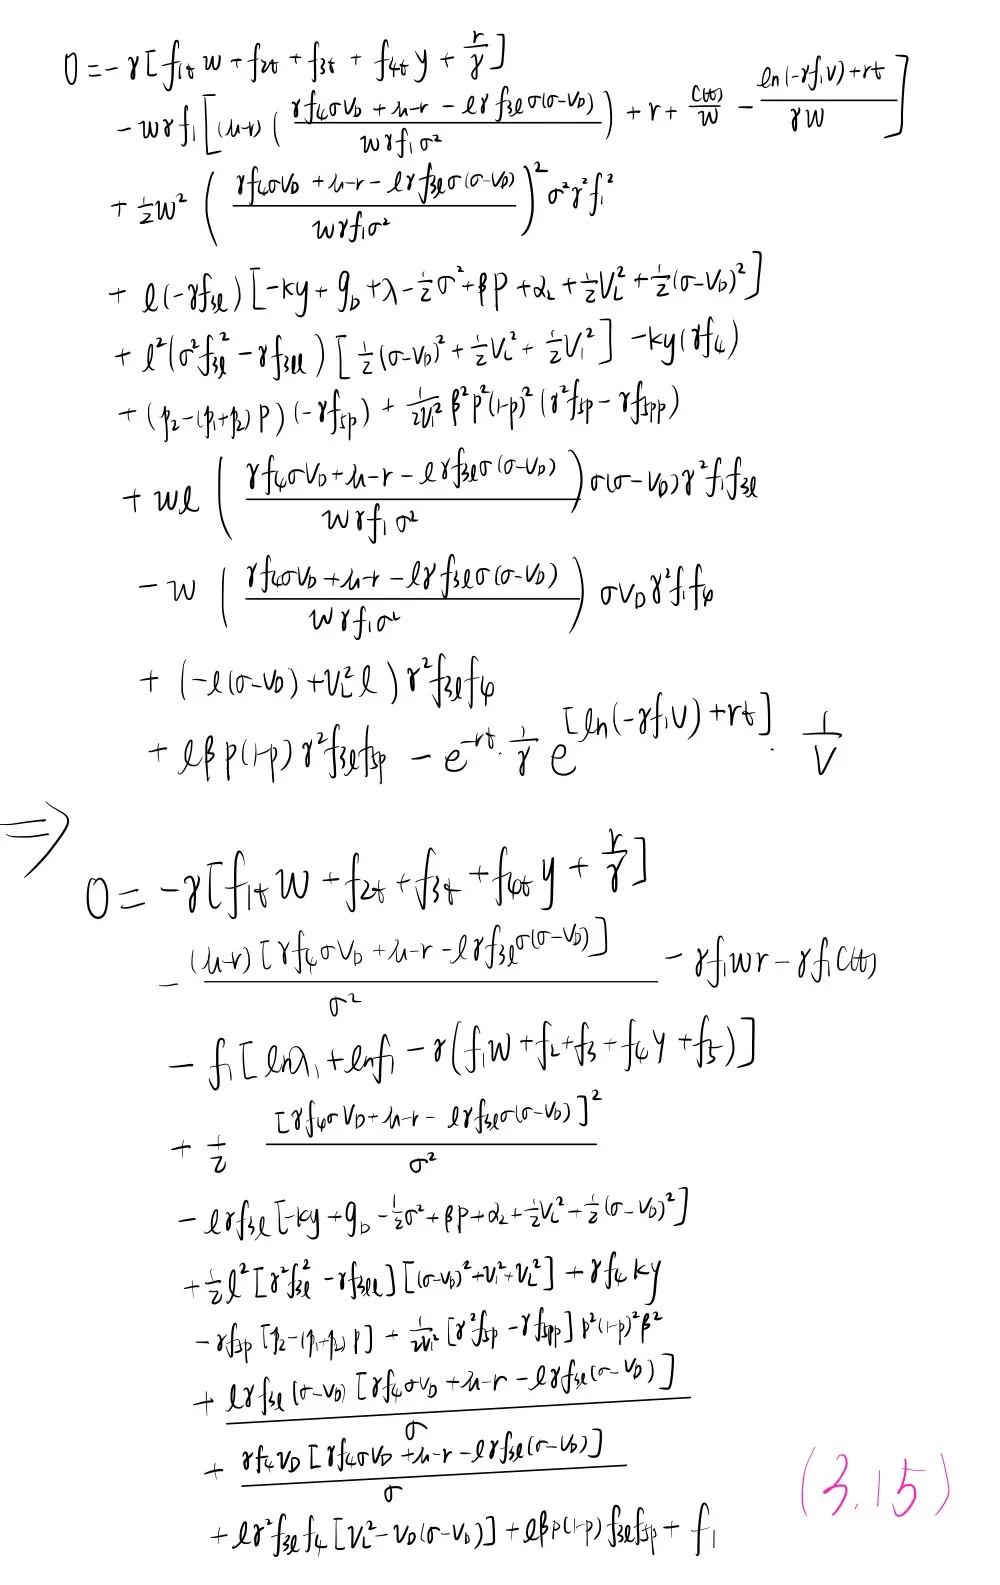 0 = -γ[f₁ₜ w + f₂ₜ + f₃ₜ + f₄ₜ y + r/γ]
- wγf₁ [(μ-r) ( (γf₄σV_D + μ-r - lγf₃ₗσ(σ-V_D)) / (wγf₁σ²) ) + r + C(t)/W - (ln(-γf₁V)+rt)/(γW) ]
+ ½w² ( (γf₄σV_D + μ-r - lγf₃ₗσ(σ-V_D)) / (wγf₁σ²) )² σ²γ²f₁²
+ l(-γf₃ₗ)[-ky + g_D + λ - ½σ² + βp + α₂ + ½V_L² + ½(σ-V_D)²]
+ l²(σ²f₃ₗ² - γf₃ₗₗ)[½(σ-V_D)² + ½V_L² + ½V₁²] - ky(γf₄)
+ (p₂-(p₁+p₂)p)(-γf₅p) + 1/(2V₁²) β²p²(1-p)²(γ²f₅p - γf₅pp)
+ wl ( (γf₄σV_D + μ-r - lγf₃ₗσ(σ-V_D)) / (wγf₁σ²) ) σ(σ-V_D)γ²f₁f₃ₗ
- w ( (γf₄σV_D + μ-r - lγf₃ₗσ(σ-V_D)) / (wγf₁σ²) ) σV_Dγ²f₁f₄
+ (-l(σ-V_D) + V_L²l)γ²f₃ₗf₄
+ lβp(1-p)γ²f₃ₗf₅p - e^{-rt}·1/γ e^{[ln(-γf₁V)+rt]} · 1/V
⇒
0 = -γ[f₁ₜ w + f₂ₜ + f₃ₜ + f₄ₜ y + r/γ]
- (μ-r)[γf₄σV_D + μ-r - lγf₃ₗσ(σ-V_D)] / σ² - γf₁wr - γf₁C(t)
- f₁[lnλ₁ + lnf₁ - γ(f₁w + f₂ + f₃ + f₄y + f₅)]
+ ½ [γf₄σV_D + μ-r - lγf₃ₗσ(σ-V_D)]² / σ²
- lγf₃ₗ[-ky + g_D - ½σ² + βp + α₂ + ½V_L² + ½(σ-V_D)²]
+ ½l²[γ²f₃ₗ² - γf₃ₗₗ][(σ-V_D)² + V₁² + V_L²] + γf₄ky
- γf₅p[p₂-(p₁+p₂)p] + 1/(2V₁²)[γ²f₅p - γf₅pp]p²(1-p)²β²
+ lγf₃ₗ(σ-V_D)[γf₄σV_D + μ-r - lγf₃ₗ(σ-V_D)] / σ
+ γf₄V_D[γf₄σV_D + μ-r - lγf₃ₗ(σ-V_D)] / σ
+ lγ²f₃ₗf₄[V_L² - V_D(σ-V_D)] + lβp(1-p)f₃ₗf₅p + f₁
(3.15)